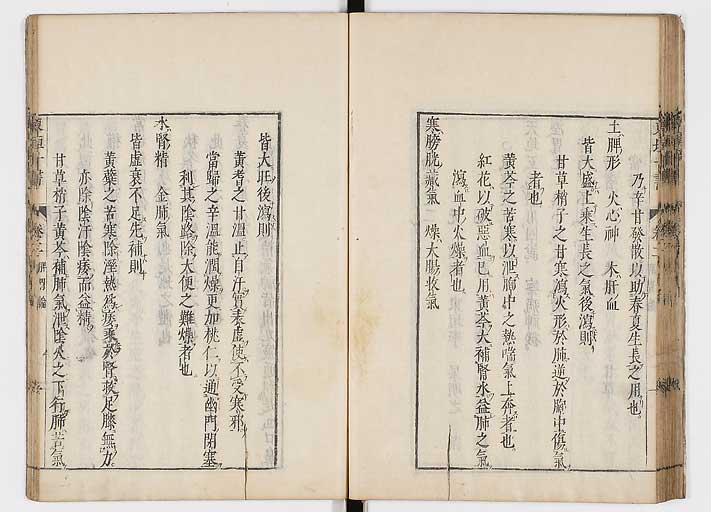 乃辛甘發散以助春夏生長之用也
土脾形　火心神　木肝血
皆大盛上乘生長之氣後瀉則
甘草梢子之甘寒瀉火形於肺逆於胸中傷氣
者也
黃芩之苦寒以泄胸中之熱喘氣上奔者也
紅花以破惡血已用黃芩大補腎水益肺之氣
瀉血中火燥者也
寒膀胱藏氣　燥大腸收氣
皆大旺後瀉則
黃耆之甘溫止自汗實表虛使不受寒邪
當歸之辛溫能潤燥更加桃仁以通幽門閉塞
利其陰路除大便之難燥者也
水腎精　金肺氣
皆虛衰不足先補則
黃蘗之苦寒除溼熱爲痿乘於腎救足膝無力
亦除陰汗陰痿而益精
甘草梢子黃芩補肺氣泄陰火之下行肺苦氣